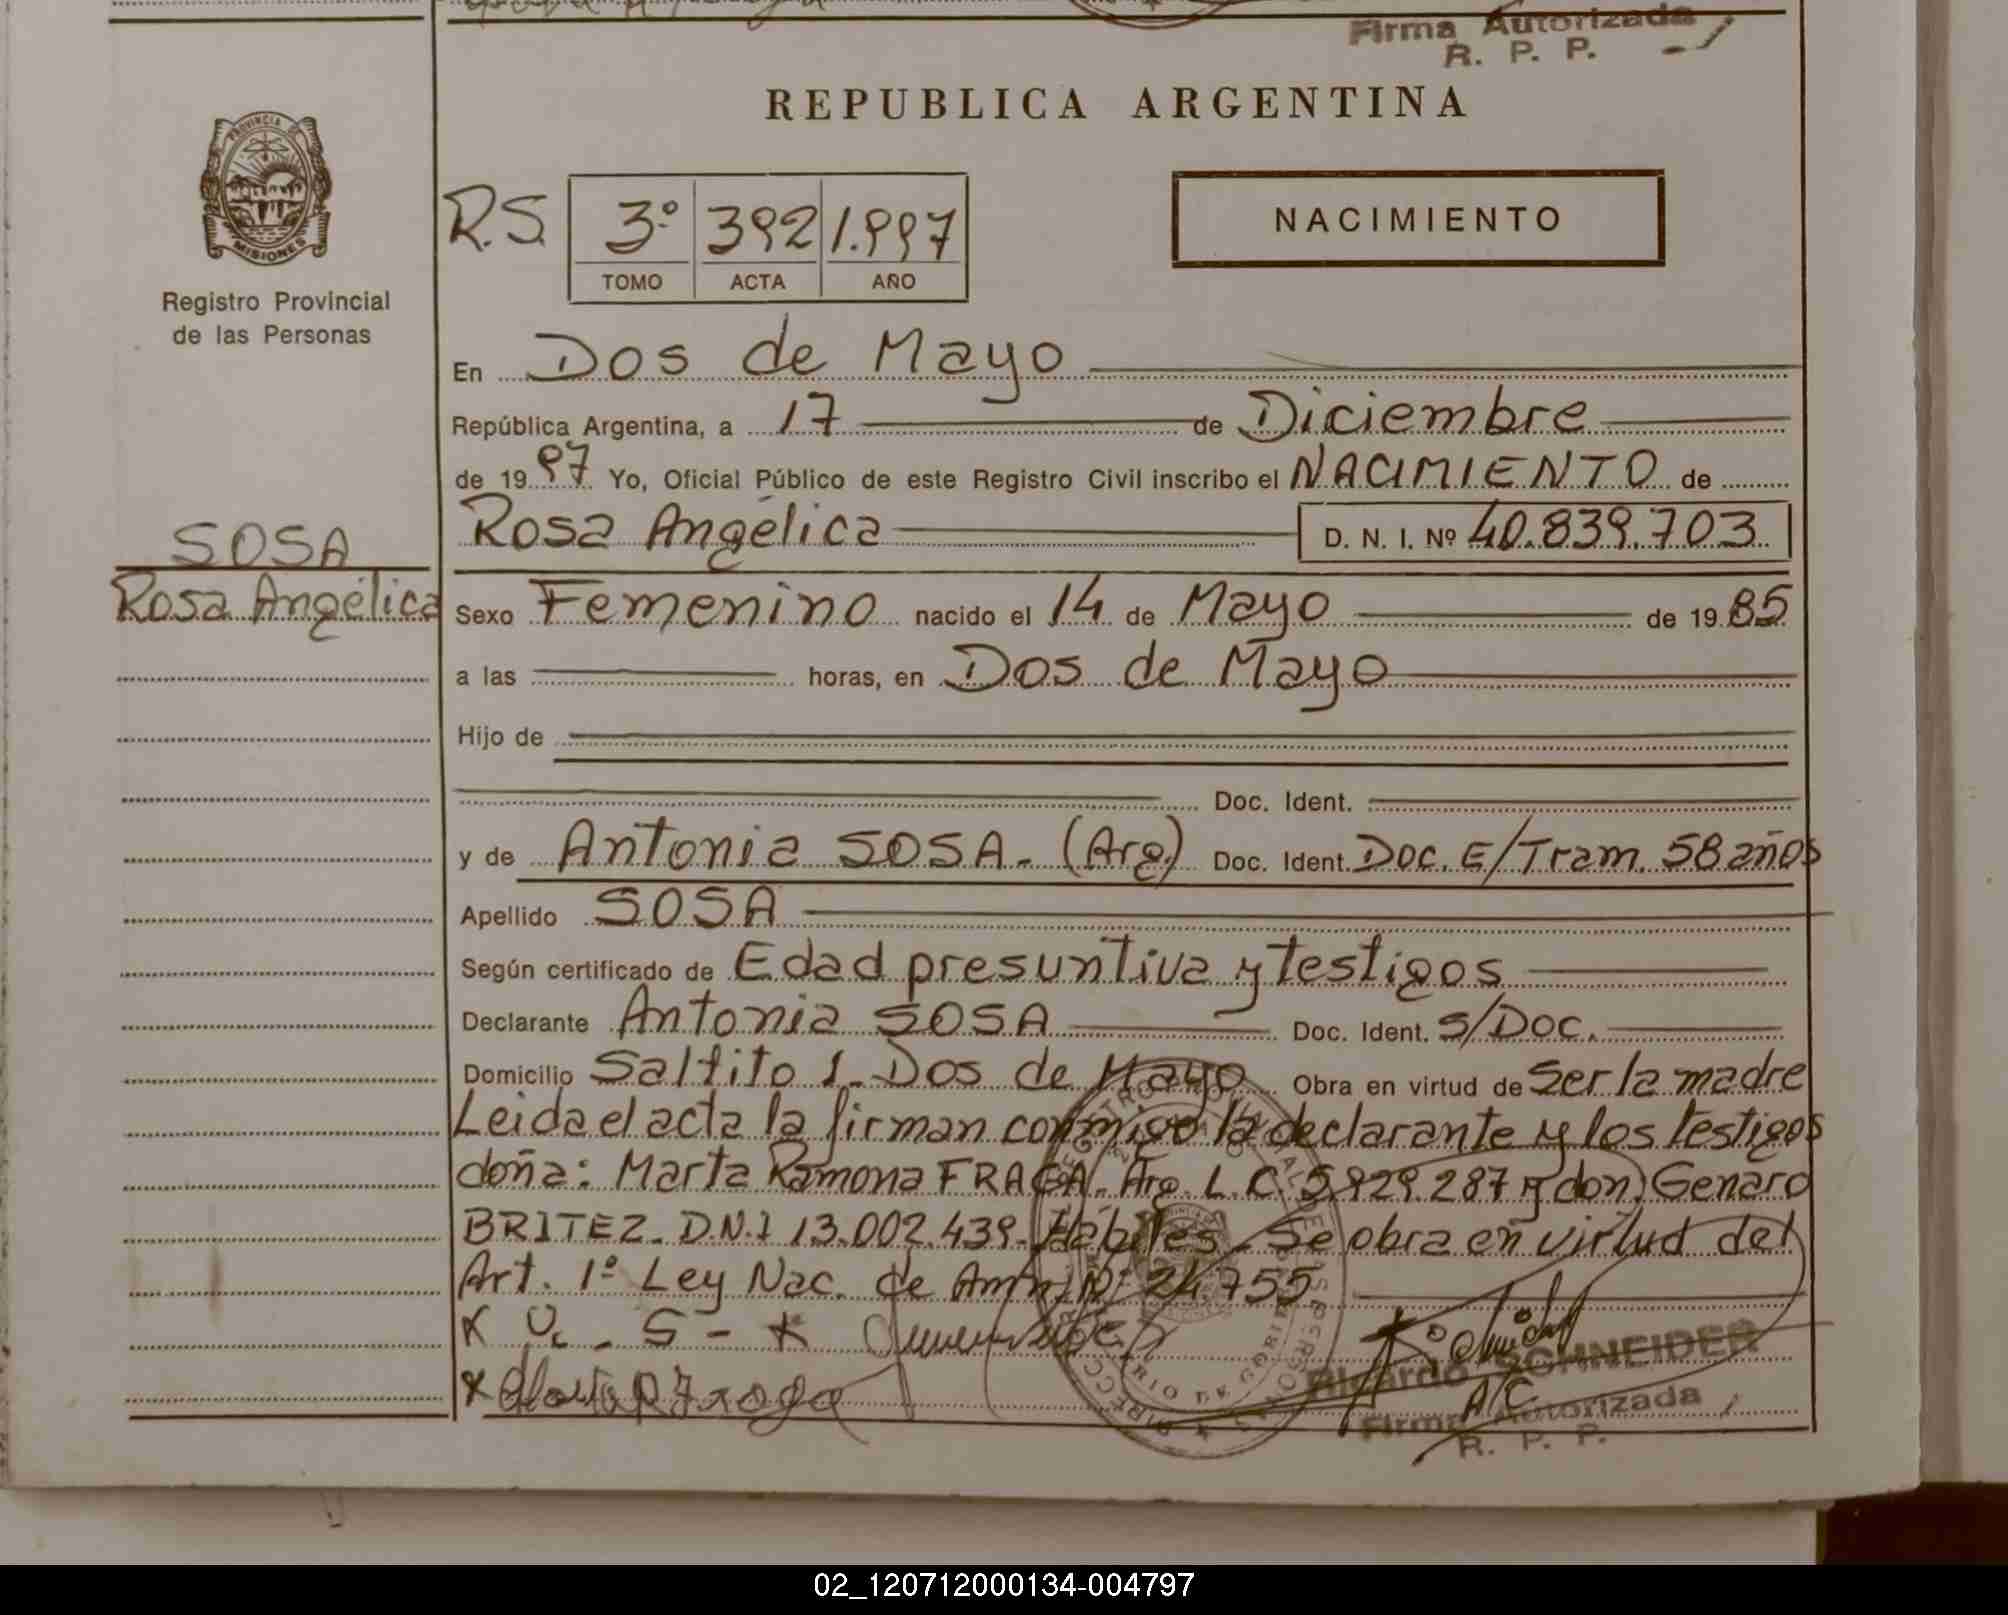 Firma Autorizada
R. P. P.
REPUBLICA ARGENTINA
PROVINCIA DE
MISIONES
Registro Provincial
de las Personas
R.S. 3º 392 1.997
TOMO ACTA AÑO
NACIMIENTO
En Dos de Mayo
República Argentina, a 17 de Diciembre
de 19 97 Yo, Oficial Público de este Registro Civil inscribo el NACIMIENTO de
SOSA
Rosa Angélica
Rosa Angélica D. N. I. Nº 40.839.703
Sexo Femenino nacido el 14 de Mayo de 19 85
a las horas, en Dos de Mayo
Hijo de
Doc. Ident.
y de Antonia SOSA.- (Arg.) Doc. Ident. Doc. E/Tram. 58 años
Apellido SOSA
Según certificado de Edad presuntiva y testigos
Declarante Antonia SOSA Doc. Ident. S/Doc.
Domicilio Saltito 1- Dos de Mayo Obra en virtud de Ser la madre
Leida el acta la firman conmigo la declarante y los testigos
doña: Marta Ramona FRAGA- Arg. L.C. 5.929.287 y don Genaro
BRITEZ- D.N.I 13.002.439- Hábiles- Se obra en virtud del
Art. 1º Ley Nac. de Amn. Nº 24.755
Ricardo SCHNEIDER
A/C
Firma Autorizada
R. P. P.
02_120712000134-004797